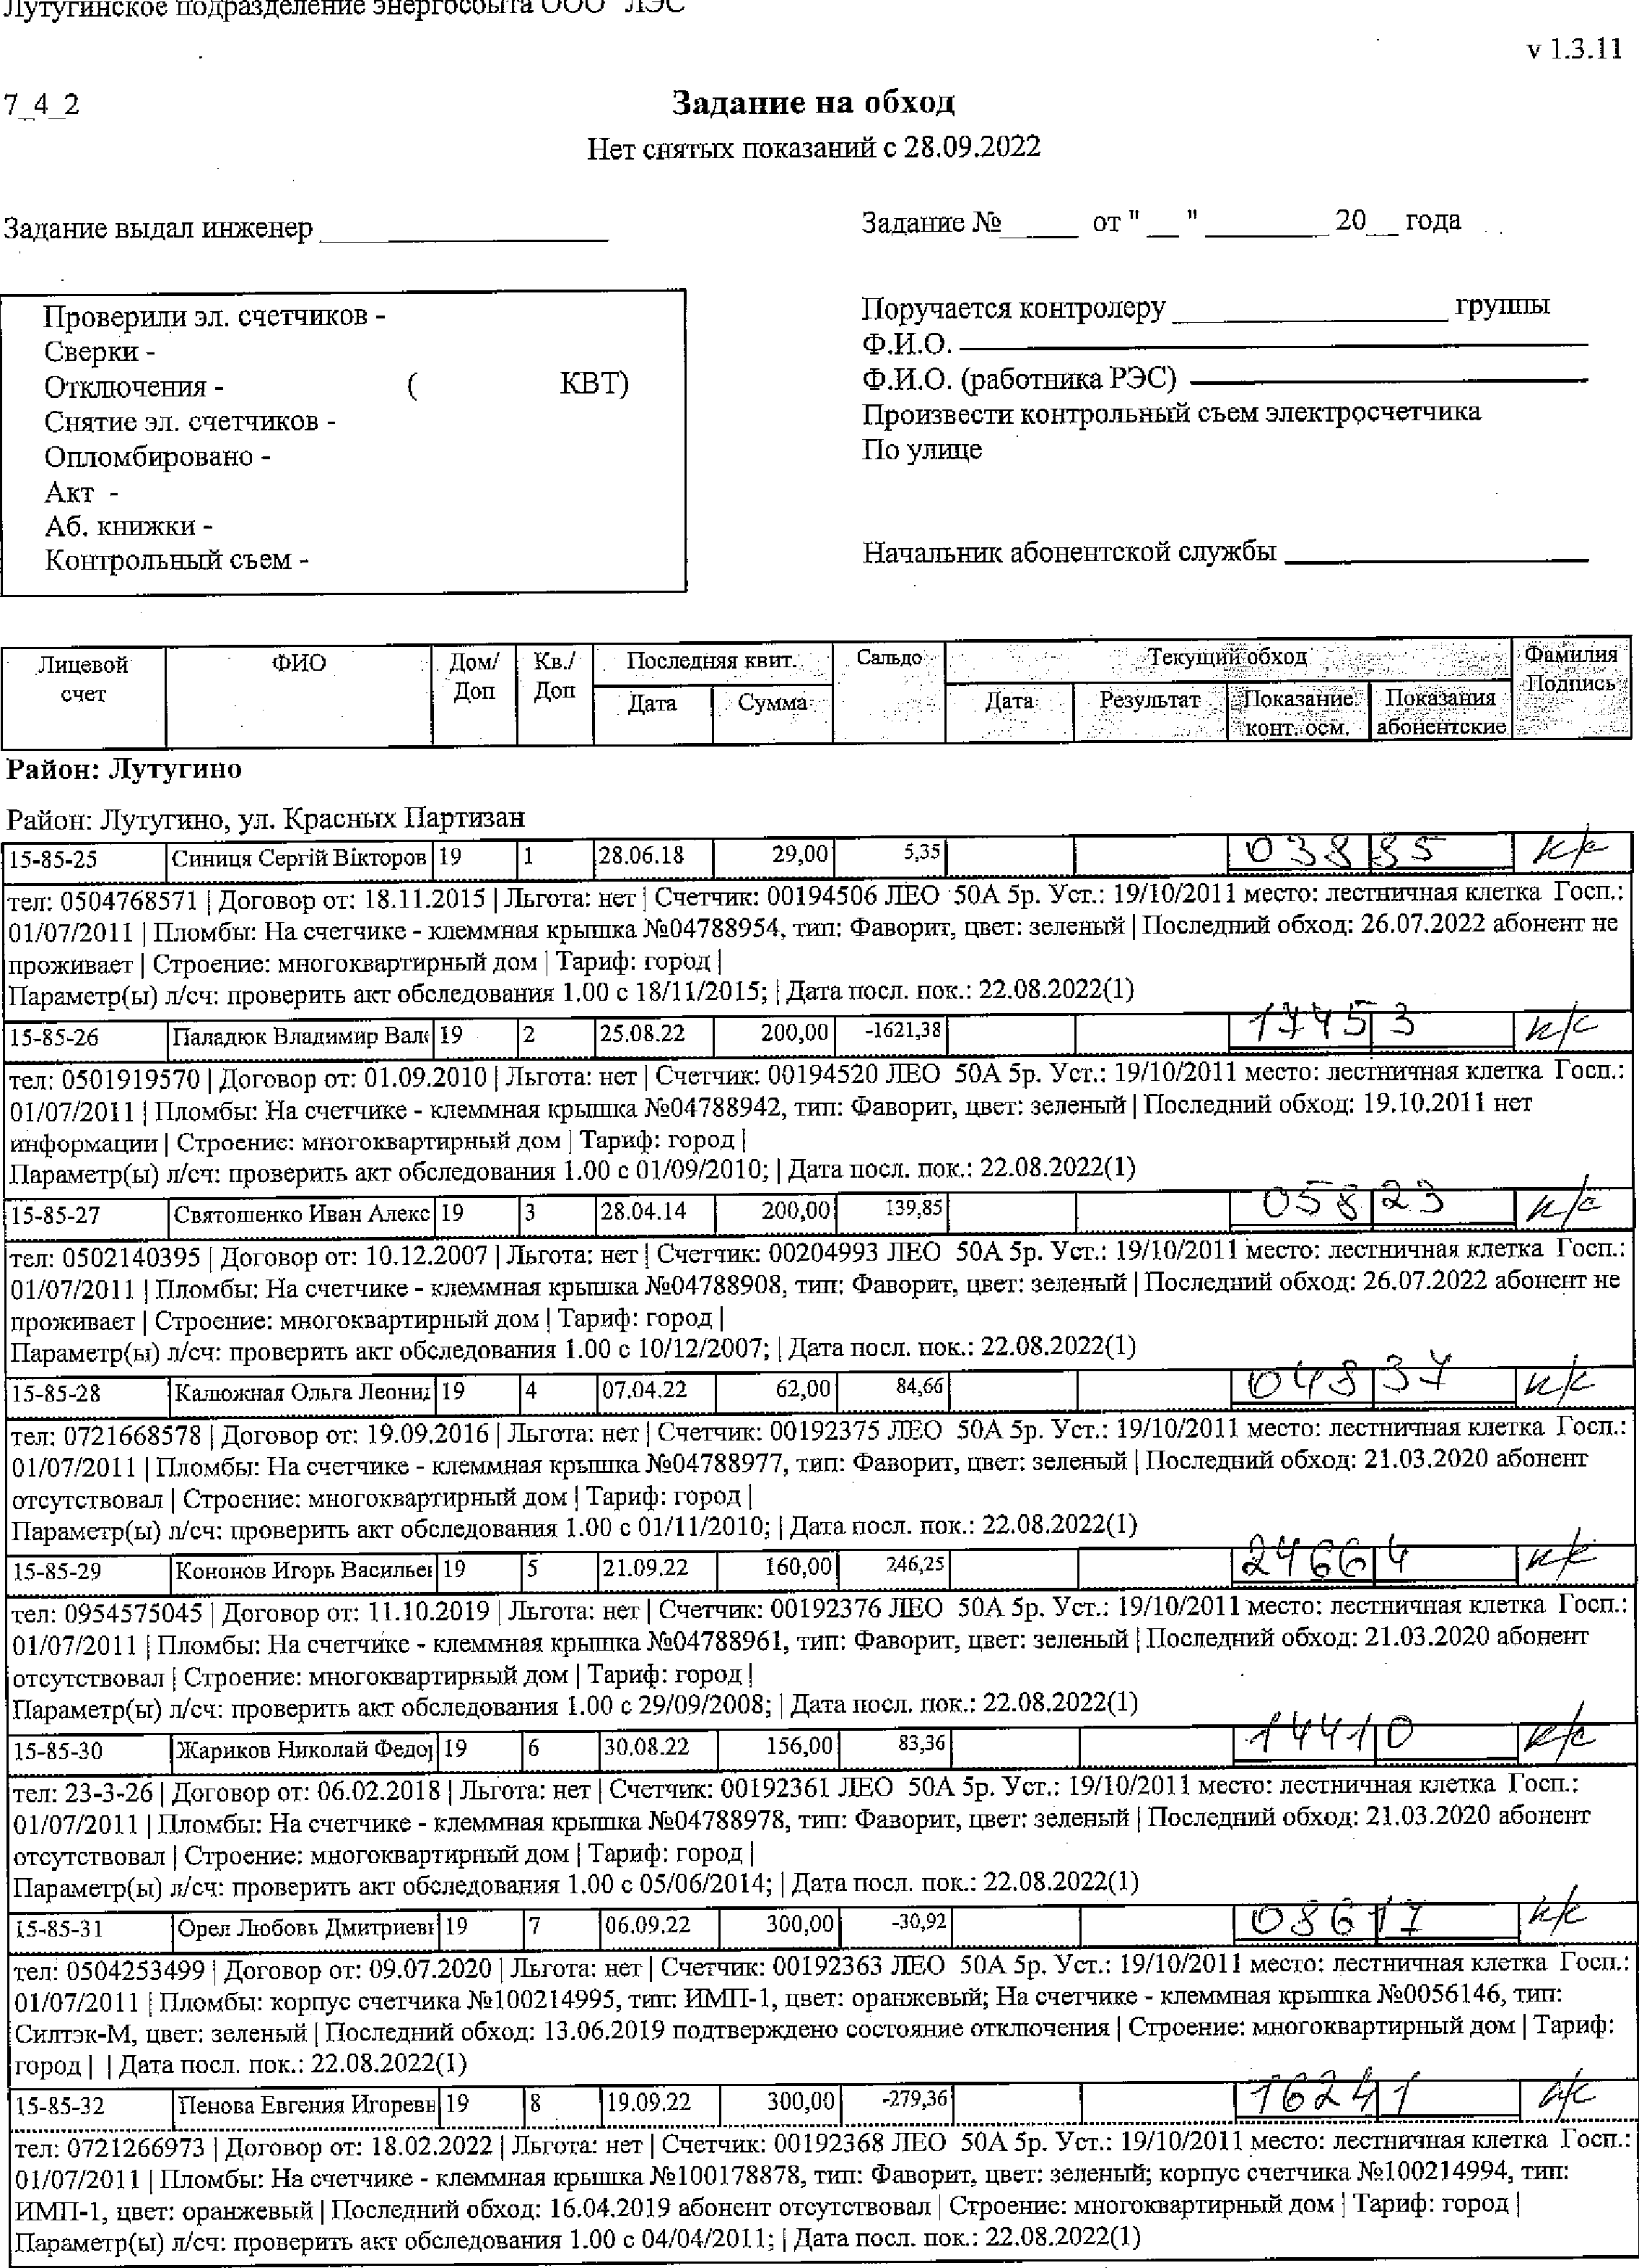 Лутугинское подразделение энергосбыта ООО "ЛЭС"
v 1.3.11
7_4_2
Задание на обход
Нет снятых показаний с 28.09.2022
Задание выдал инженер
Задание №_____ от "__" ________ 20__ года
Проверили эл. счетчиков -
Сверки -
Отключения - ( КВТ)
Снятие эл. счетчиков -
Опломбировано -
Акт -
Аб. книжки -
Контрольный съем -
Поручается контролеру ____________ группы
Ф.И.О.
Ф.И.О. (работника РЭС)
Произвести контрольный съем электросчетчика
По улице
Начальник абонентской службы
Лицевой счет ФИО Дом/ Доп Кв./ Доп Последняя квит. Дата Сумма Сальдо Текущий обход Дата Результат Показание конт. осм. Показания абонентские Фамилия Подпись
Район: Лутугино
Район: Лутугино, ул. Красных Партизан
15-85-25 Синиця Сергій Вікторов 19 1 28.06.18 29,00 5,35 03885 к/с
тел: 0504768571 | Договор от: 18.11.2015 | Льгота: нет | Счетчик: 00194506 ЛЕО 50А 5р. Уст.: 19/10/2011 место: лестничная клетка Госп.:
01/07/2011 | Пломбы: На счетчике - клеммная крышка №04788954, тип: Фаворит, цвет: зеленый | Последний обход: 26.07.2022 абонент не
проживает | Строение: многоквартирный дом | Тариф: город |
Параметр(ы) л/сч: проверить акт обследования 1.00 с 18/11/2015; | Дата посл. пок.: 22.08.2022(1)
15-85-26 Паладюк Владимир Вал 19 2 25.08.22 200,00 -1621,38 17453 к/с
тел: 0501919570 | Договор от: 01.09.2010 | Льгота: нет | Счетчик: 00194520 ЛЕО 50А 5р. Уст.: 19/10/2011 место: лестничная клетка Госп.:
01/07/2011 | Пломбы: На счетчике - клеммная крышка №04788942, тип: Фаворит, цвет: зеленый | Последний обход: 19.10.2011 нет
информации | Строение: многоквартирный дом | Тариф: город |
Параметр(ы) л/сч: проверить акт обследования 1.00 с 01/09/2010; | Дата посл. пок.: 22.08.2022(1)
15-85-27 Святошенко Иван Алекс 19 3 28.04.14 200,00 139,85 05823 к/с
тел: 0502140395 | Договор от: 10.12.2007 | Льгота: нет | Счетчик: 00204993 ЛЕО 50А 5р. Уст.: 19/10/2011 место: лестничная клетка Госп.:
01/07/2011 | Пломбы: На счетчике - клеммная крышка №04788908, тип: Фаворит, цвет: зеленый | Последний обход: 26.07.2022 абонент не
проживает | Строение: многоквартирный дом | Тариф: город |
Параметр(ы) л/сч: проверить акт обследования 1.00 с 10/12/2007; | Дата посл. пок.: 22.08.2022(1)
15-85-28 Калюжная Ольга Леонид 19 4 07.04.22 62,00 84,66 04837 к/с
тел: 0721668578 | Договор от: 19.09.2016 | Льгота: нет | Счетчик: 00192375 ЛЕО 50А 5р. Уст.: 19/10/2011 место: лестничная клетка Госп.:
01/07/2011 | Пломбы: На счетчике - клеммная крышка №04788977, тип: Фаворит, цвет: зеленый | Последний обход: 21.03.2020 абонент
отсутствовал | Строение: многоквартирный дом | Тариф: город |
Параметр(ы) л/сч: проверить акт обследования 1.00 с 01/11/2010; | Дата посл. пок.: 22.08.2022(1)
15-85-29 Кононов Игорь Васильеı 19 5 21.09.22 160,00 246,25 24664 к/с
тел: 0954575045 | Договор от: 11.10.2019 | Льгота: нет | Счетчик: 00192376 ЛЕО 50А 5р. Уст.: 19/10/2011 место: лестничная клетка Госп.:
01/07/2011 | Пломбы: На счетчике - клеммная крышка №04788961, тип: Фаворит, цвет: зеленый | Последний обход: 21.03.2020 абонент
отсутствовал | Строение: многоквартирный дом | Тариф: город |
Параметр(ы) л/сч: проверить акт обследования 1.00 с 29/09/2008; | Дата посл. пок.: 22.08.2022(1)
15-85-30 Жариков Николай Федор 19 6 30.08.22 156,00 83,36 14410 к/с
тел: 23-3-26 | Договор от: 06.02.2018 | Льгота: нет | Счетчик: 00192361 ЛЕО 50А 5р. Уст.: 19/10/2011 место: лестничная клетка Госп.:
01/07/2011 | Пломбы: На счетчике - клеммная крышка №04788978, тип: Фаворит, цвет: зеленый | Последний обход: 21.03.2020 абонент
отсутствовал | Строение: многоквартирный дом | Тариф: город |
Параметр(ы) л/сч: проверить акт обследования 1.00 с 05/06/2014; | Дата посл. пок.: 22.08.2022(1)
15-85-31 Орел Любовь Дмитриевн 19 7 06.09.22 300,00 -30,92 08617 к/с
тел: 0504253499 | Договор от: 09.07.2020 | Льгота: нет | Счетчик: 00192363 ЛЕО 50А 5р. Уст.: 19/10/2011 место: лестничная клетка Госп.:
01/07/2011 | Пломбы: корпус счетчика №100214995, тип: ИМП-1, цвет: оранжевый; На счетчике - клеммная крышка №0056146, тип:
Силтэк-М, цвет: зеленый | Последний обход: 13.06.2019 подтверждено состояние отключения | Строение: многоквартирный дом | Тариф:
город | | Дата посл. пок.: 22.08.2022(1)
15-85-32 Пенова Евгения Игоревн 19 8 19.09.22 300,00 -279,36 16241 к/с
тел: 0721266973 | Договор от: 18.02.2022 | Льгота: нет | Счетчик: 00192368 ЛЕО 50А 5р. Уст.: 19/10/2011 место: лестничная клетка Госп.:
01/07/2011 | Пломбы: На счетчике - клеммная крышка №100178878, тип: Фаворит, цвет: зеленый; корпус счетчика №100214994, тип:
ИМП-1, цвет: оранжевый | Последний обход: 16.04.2019 абонент отсутствовал | Строение: многоквартирный дом | Тариф: город |
Параметр(ы) л/сч: проверить акт обследования 1.00 с 04/04/2011; | Дата посл. пок.: 22.08.2022(1)